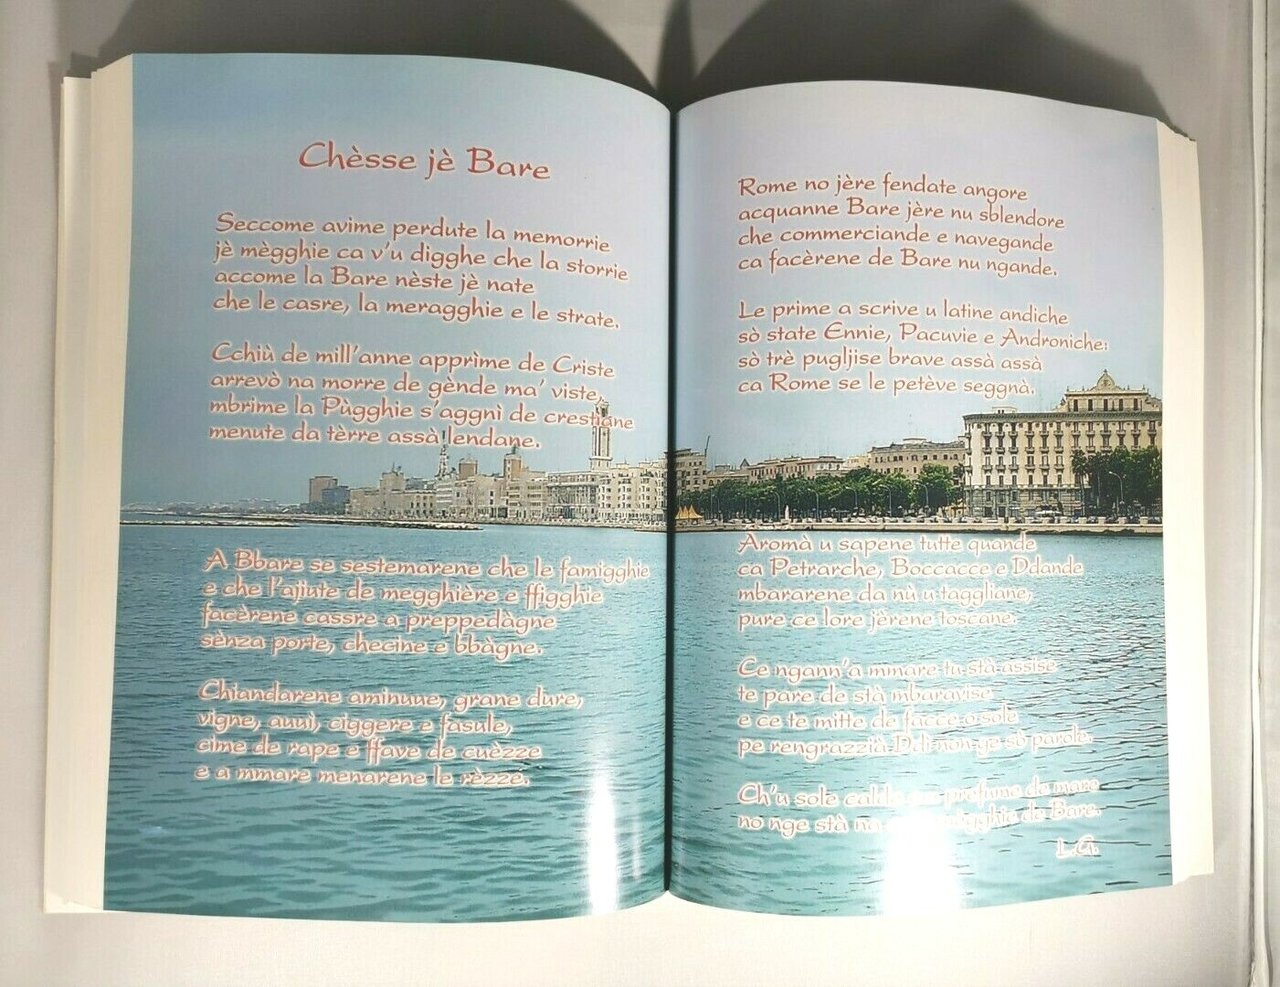 Chèsse jè Bare
Seccome avime perdute la memorrie
jè mègghie ca v'u digghe che la storrie
accome la Bare nèste jè nate
che le casre, la meragghie e le strate.
Cchiù de mill'anne apprìme de Criste
arrevò na morre de gènde ma' viste,
mbrime la Pùgghie s'aggnì de crestiane
menute da tèrre assà lendane.
A Bbare se sestemarene che le famigghie
e che l'ajiute de megghière e ffigghie
facèrene cassre a preppedàgne
sènza porte, checine e bbàgne.
Chiandarene aminuue, grane dure,
vigne, auuì, ciggere e fasule,
cime de rape e ffave de cuèzze
e a mmare menarene le rèzze.
Rome no jère fendate angore
acquanne Bare jère nu sblendore
che commerciande e navegande
ca facèrene de Bare nu ngande.
Le prime a scrive u latine andiche
sò state Ennie, Pacuvie e Androniche:
sò trè pugljise brave assà assà
ca Rome se le petève seggnà.
Aromà u sapene tutte quande
ca Petrarche, Boccacce e Ddande
mbararene da nù u taggliane,
pure ce lore jèrene toscane.
Ce ngann'a mmare tu stà assise
te pare de stà mbaravise
e ce te mitte de facce o sole
pe rengrazzià Ddì non ge sò parole.
Ch'u sole calde profume de mare
no nge stà na mègghie de Bare.
L.G.